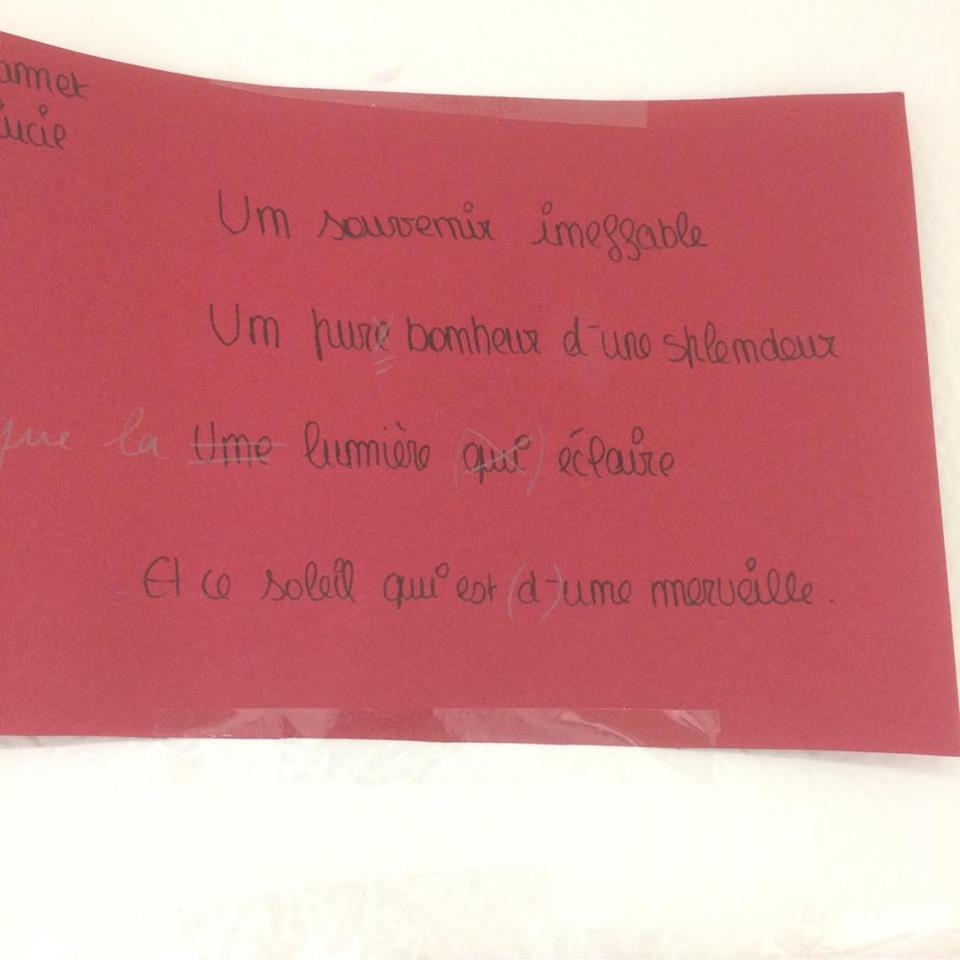 amet
ucie
Un souvenir ineffable
Un pure bonheur d'une splendeur
que la Une lumière (qui) éclaire
Et ce soleil qui est (d')une merveille.